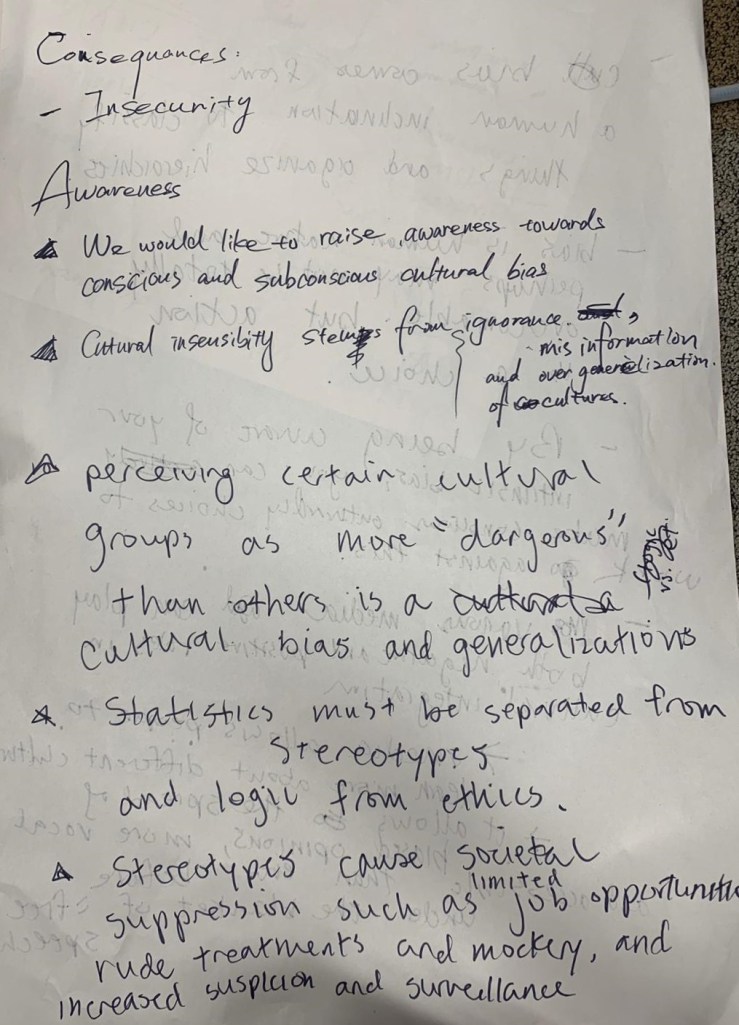 Consequances:
- Insecurity
Awareness
We would like to raise awareness towards
conscious and subconscious cultural bias
Cutural insensibity stems from ignorance,
misinformation
and over generelization.
of cultures.
perceiving certain cultural
groups as more "dargerous"
than others is a
cultural bias and generalizations
Statistics must be separated from
stereotypes
and logic from ethics.
Stereotypes cause societal
limited
suppression such as job opportunities
rude treatments and mockery, and
increased suspicion and surveillance